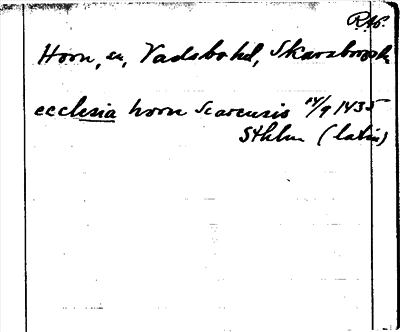 RAp.
Horn, sn, Vadsbo hd, Skarabrogsl
ecclesia horn Scarensis 14/9 1435
Sthlm (latin)